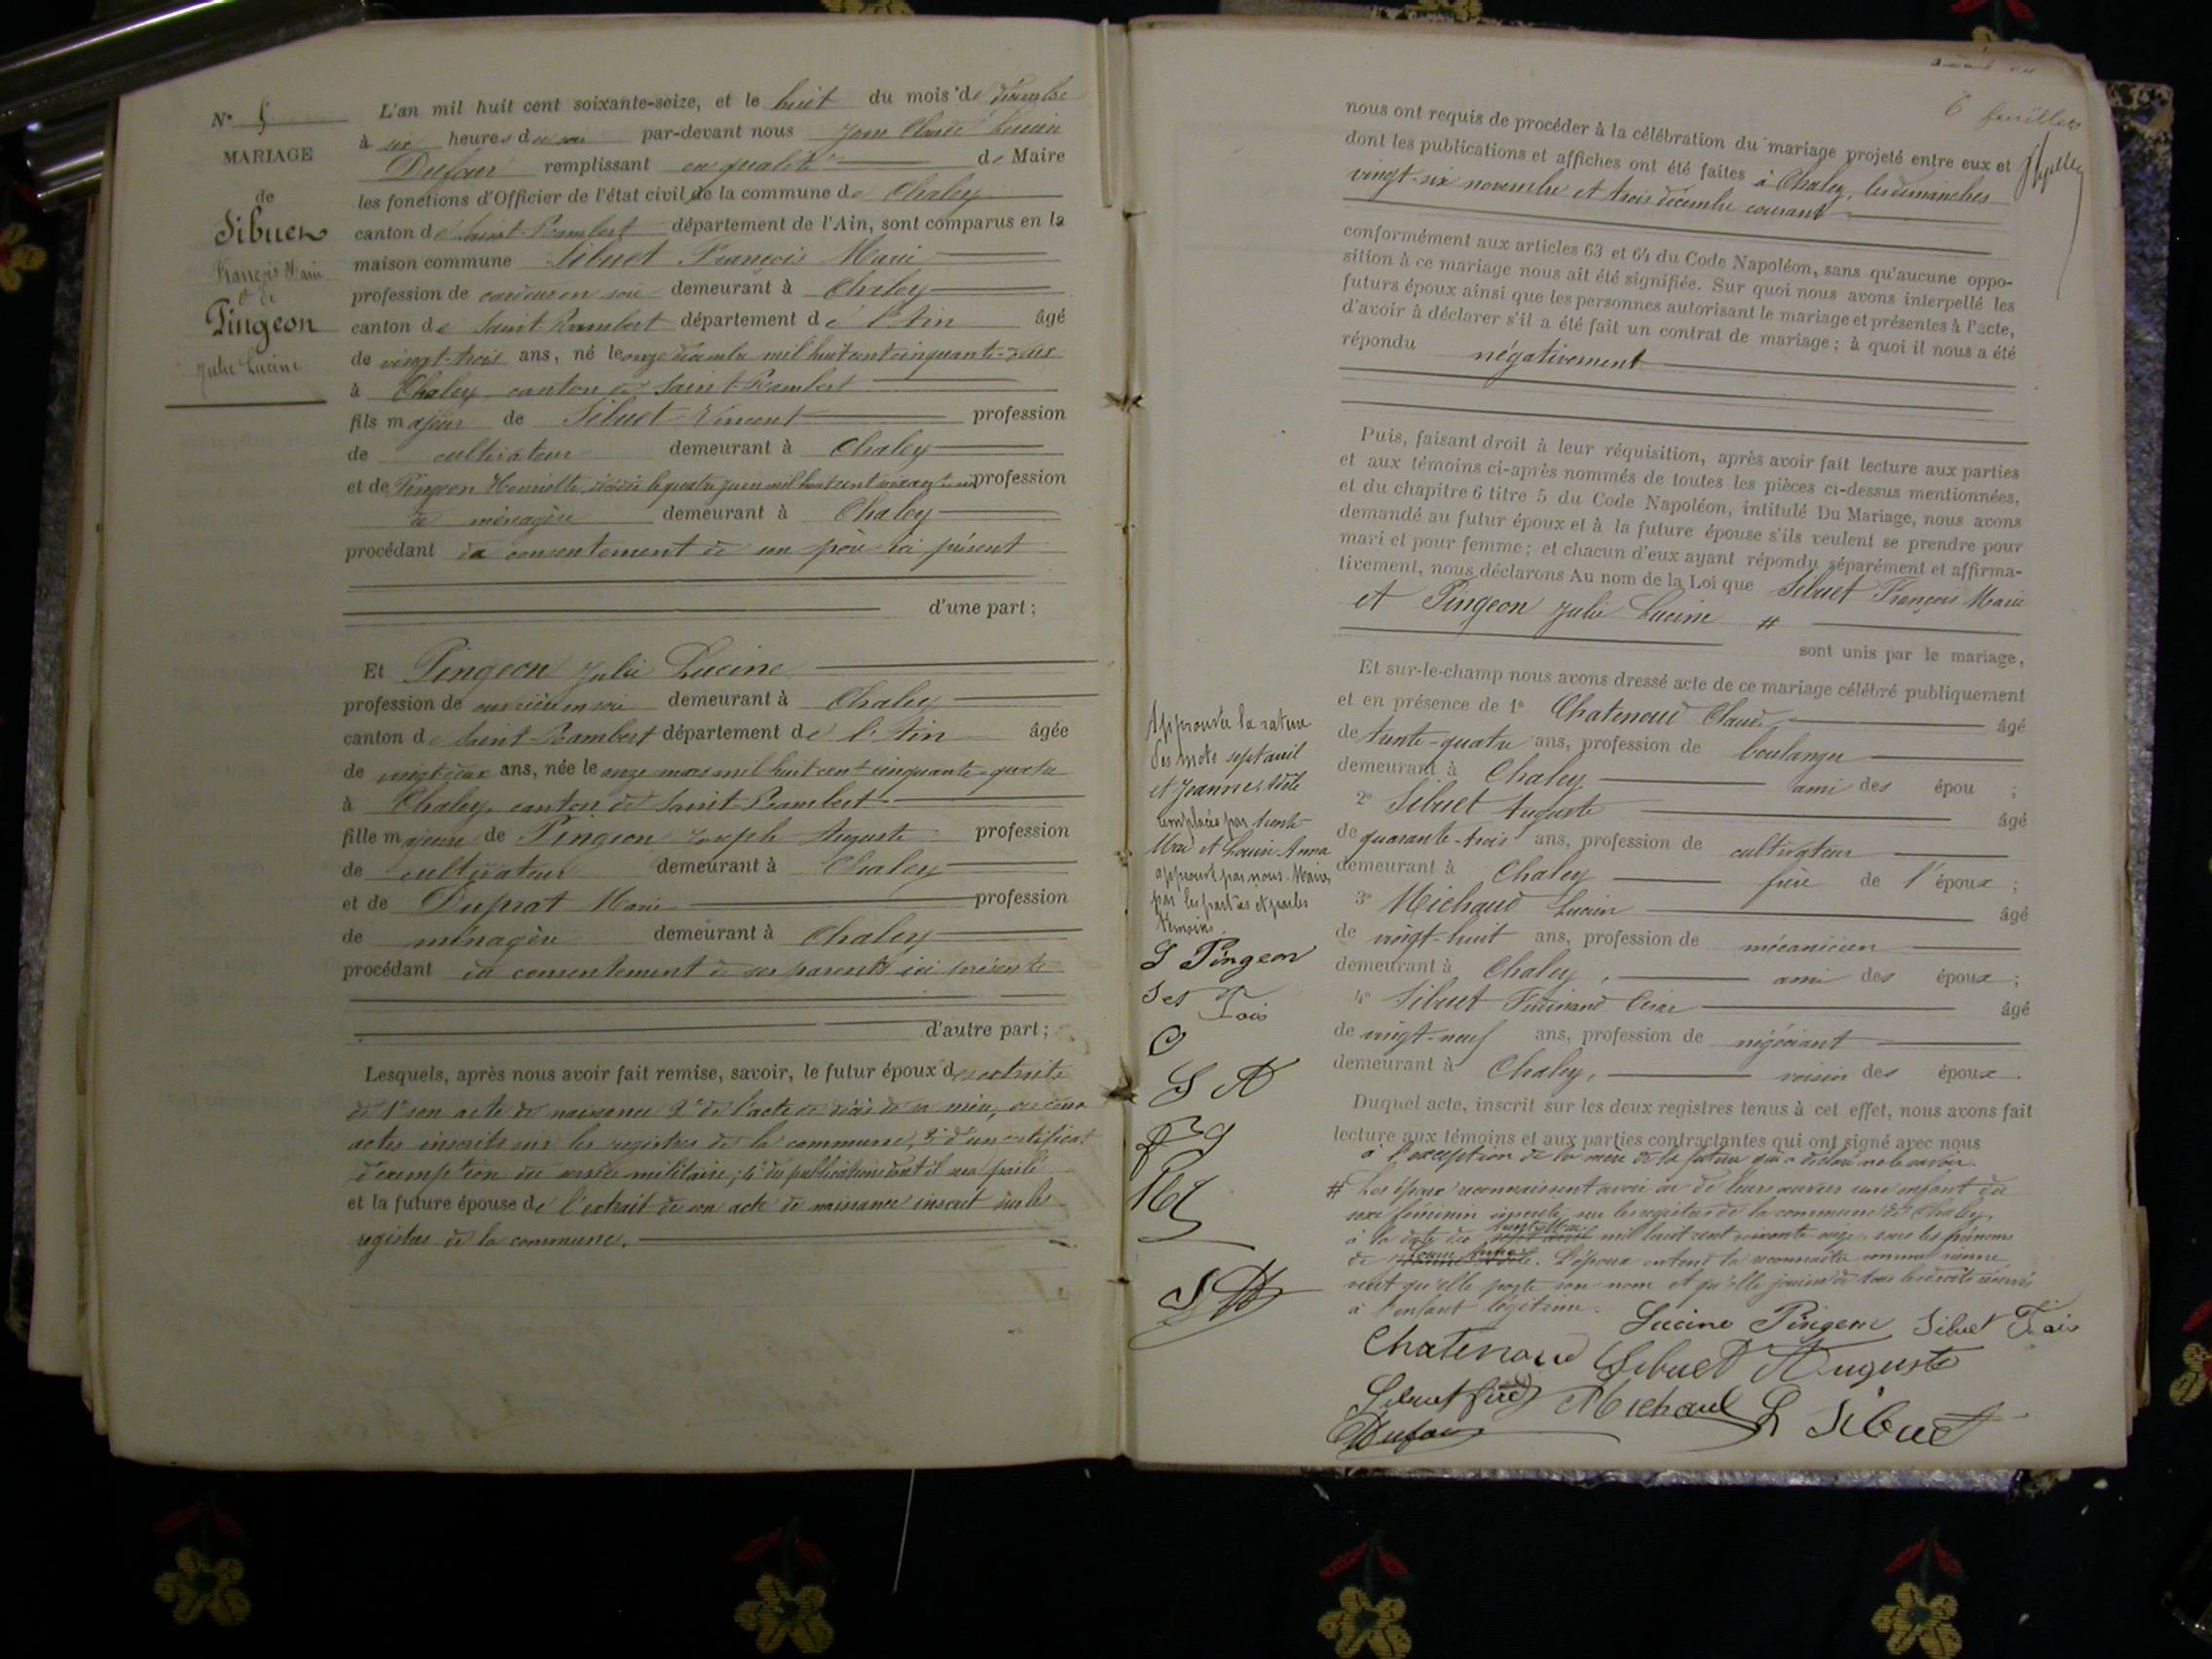 N° 5
MARIAGE
de
Sibuet
François Marie
& de
Pingeon
Julie Lucine
L'an mil huit cent soixante-seize, et le huit du mois de décembre
à six heures du soir par-devant nous Jean Claude Lucien
Dufour remplissant en qualité de Maire
les fonctions d'Officier de l'état civil de la commune de Chaley
canton de Saint-Rambert département de l'Ain, sont comparus en la
maison commune Sibuet François Marie
profession de cardeur en soie demeurant à Chaley
canton de Saint-Rambert département de l'Ain âgé
de vingt-trois ans, né le onze décembre mil huit cent cinquante-deux
à Chaley canton de Saint-Rambert
fils majeur de Sibuet Vincent profession
de cultivateur demeurant à Chaley
et de Pingeon Henriette décédée le quatre juin mil huit cent soixante profession
de ménagère demeurant à Chaley
procédant du consentement de son père ici présent
d'une part;
Et Pingeon Julie Lucine
profession de en soie demeurant à Chaley
canton de Saint-Rambert département de l'Ain âgée
de vingt deux ans, née le onze mars mil huit cent cinquante-quatre
à Chaley, canton de Saint-Rambert
fille majeure de Pingeon Joseph Auguste profession
de cultivateur demeurant à Chaley
et de Duprat Marie profession
de ménagère demeurant à Chaley
procédant du consentement de ses parents ici présents
d'autre part;
Lesquels, après nous avoir fait remise, savoir, le futur époux des extraits
de 1° son acte de naissance 2° de l'acte de décès de sa mère, ces deux
actes inscrits sur les registres de la commune, 3° d'un certificat
d'exemption du service militaire; 4° des publications dont il sera parlé
et la future épouse de l'extrait de son acte de naissance inscrit sur les
registres de la commune.
6 feuillets
nous ont requis de procéder à la célébration du mariage projeté entre eux et
dont les publications et affiches ont été faites à Chaley, les dimanches
vingt-six novembre et trois décembre courant
conformément aux articles 63 et 64 du Code Napoléon, sans qu'aucune oppo-
sition à ce mariage nous ait été signifiée. Sur quoi nous avons interpellé les
futurs époux ainsi que les personnes autorisant le mariage et présentes à l'acte,
d'avoir à déclarer s'il a été fait un contrat de mariage; à quoi il nous a été
répondu négativement
Puis, faisant droit à leur réquisition, après avoir fait lecture aux parties
et aux témoins ci-après nommés de toutes les pièces ci-dessus mentionnées,
et du chapitre 6 titre 5 du Code Napoléon, intitulé Du Mariage, nous avons
demandé au futur époux et à la future épouse s'ils veulent se prendre pour
mari et pour femme; et chacun d'eux ayant répondu séparément et affirma-
tivement, nous déclarons Au nom de la Loi que Sibuet François Marie
et Pingeon Julie Lucine #
sont unis par le mariage,
Et sur-le-champ nous avons dressé acte de ce mariage célébré publiquement
et en présence de 1° Chatenoud Claude âgé
de trente-quatre ans, profession de boulanger
demeurant à Chaley ami des épou ;
2° Sibuet Auguste âgé
de quarante-trois ans, profession de cultivateur
demeurant à Chaley frère de l'époux ;
3° Michaud Lucien âgé
de vingt-huit ans, profession de mécanicien
demeurant à Chaley, ami des époux ;
4° Sibuet Ferdinand César âgé
de vingt-neuf ans, profession de négociant
demeurant à Chaley, voisin des époux.
Duquel acte, inscrit sur les deux registres tenus à cet effet, nous avons fait
lecture aux témoins et aux parties contractantes qui ont signé avec nous
à l'exception de la mère de la future qui a déclaré ne le savoir.
# Les époux reconnaissent avoir eu de leurs œuvres une enfant du
sexe féminin inscrite sur les registres de la commune de Chaley,
à la date du trente Mai sept avril mil huit cent soixante-seize, sous les prénoms
de Louise Anna. L'époux entend la reconnaître comme sienne
veut qu'elle porte son nom et qu'elle jouisse de tous les droits réservés
à l'enfant légitime.
Lucine Pingeon Sibuet Fois
Chatenoud Sibuet Auguste
Sibuet ferd Michaud L Sibuet
Dufour
Approuvée la rature
des mots sept avril
et Jeanne, Adèle
remplacés par trente
Mai et Louise Anna
approuvé par nous Maire
par les parties et par les
témoins.
S Pingeon
Set Fois
C
S A
M
S